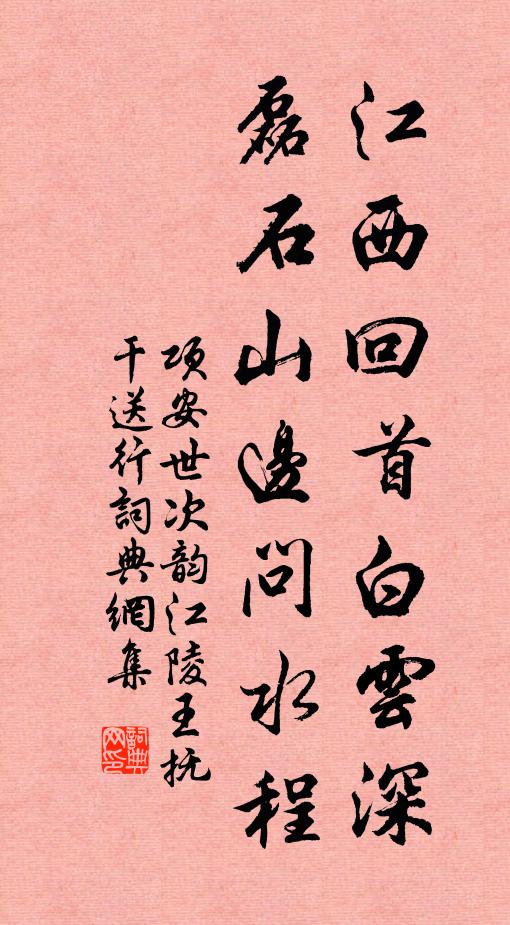 江西回首白雲深
磊石山邊問水程
項安世次韵江陵王抚
干送行詞典網集
詞典網印